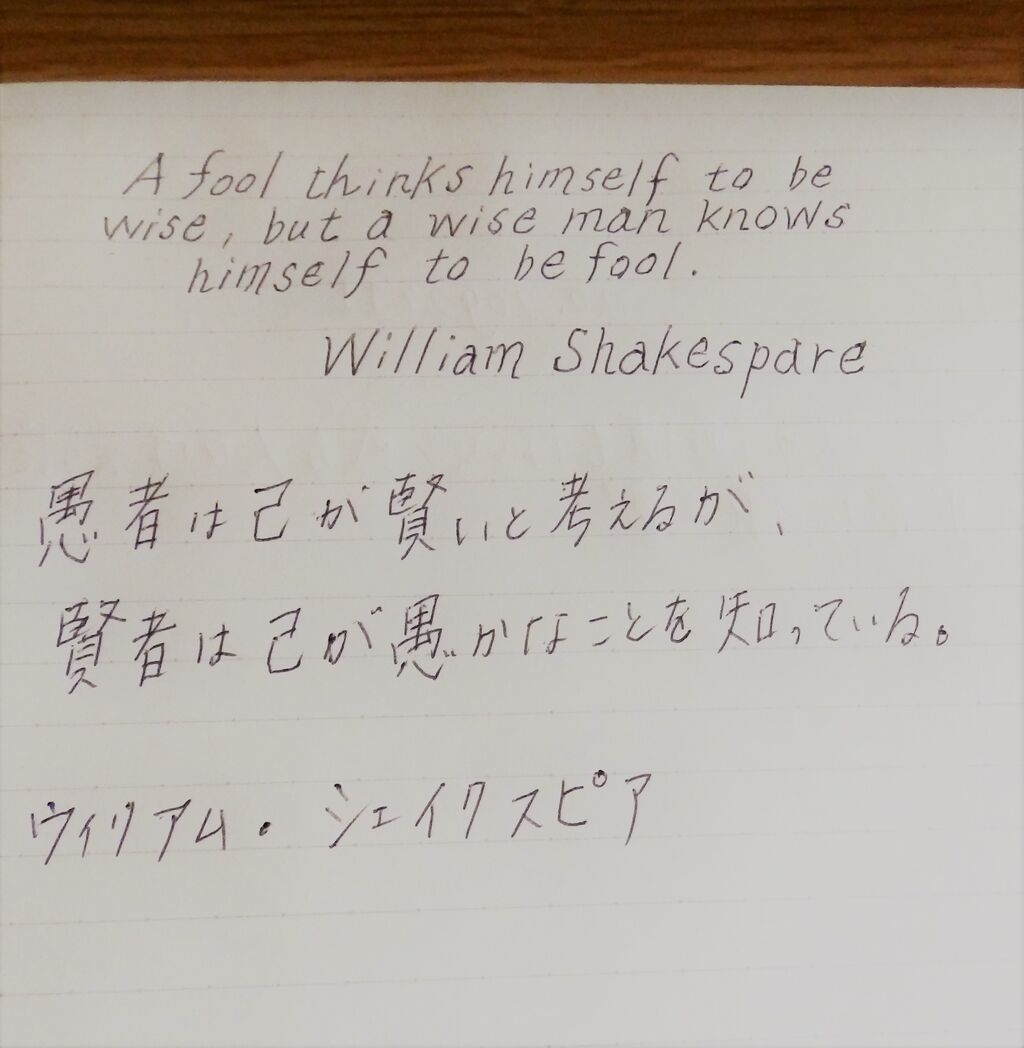 A fool thinks himself to be
wise, but a wise man knows
himself to be fool.
William Shakespare
愚者は己が賢いと考えるが、
賢者は己が愚かなことを知っている。
ウィリアム・シェイクスピア